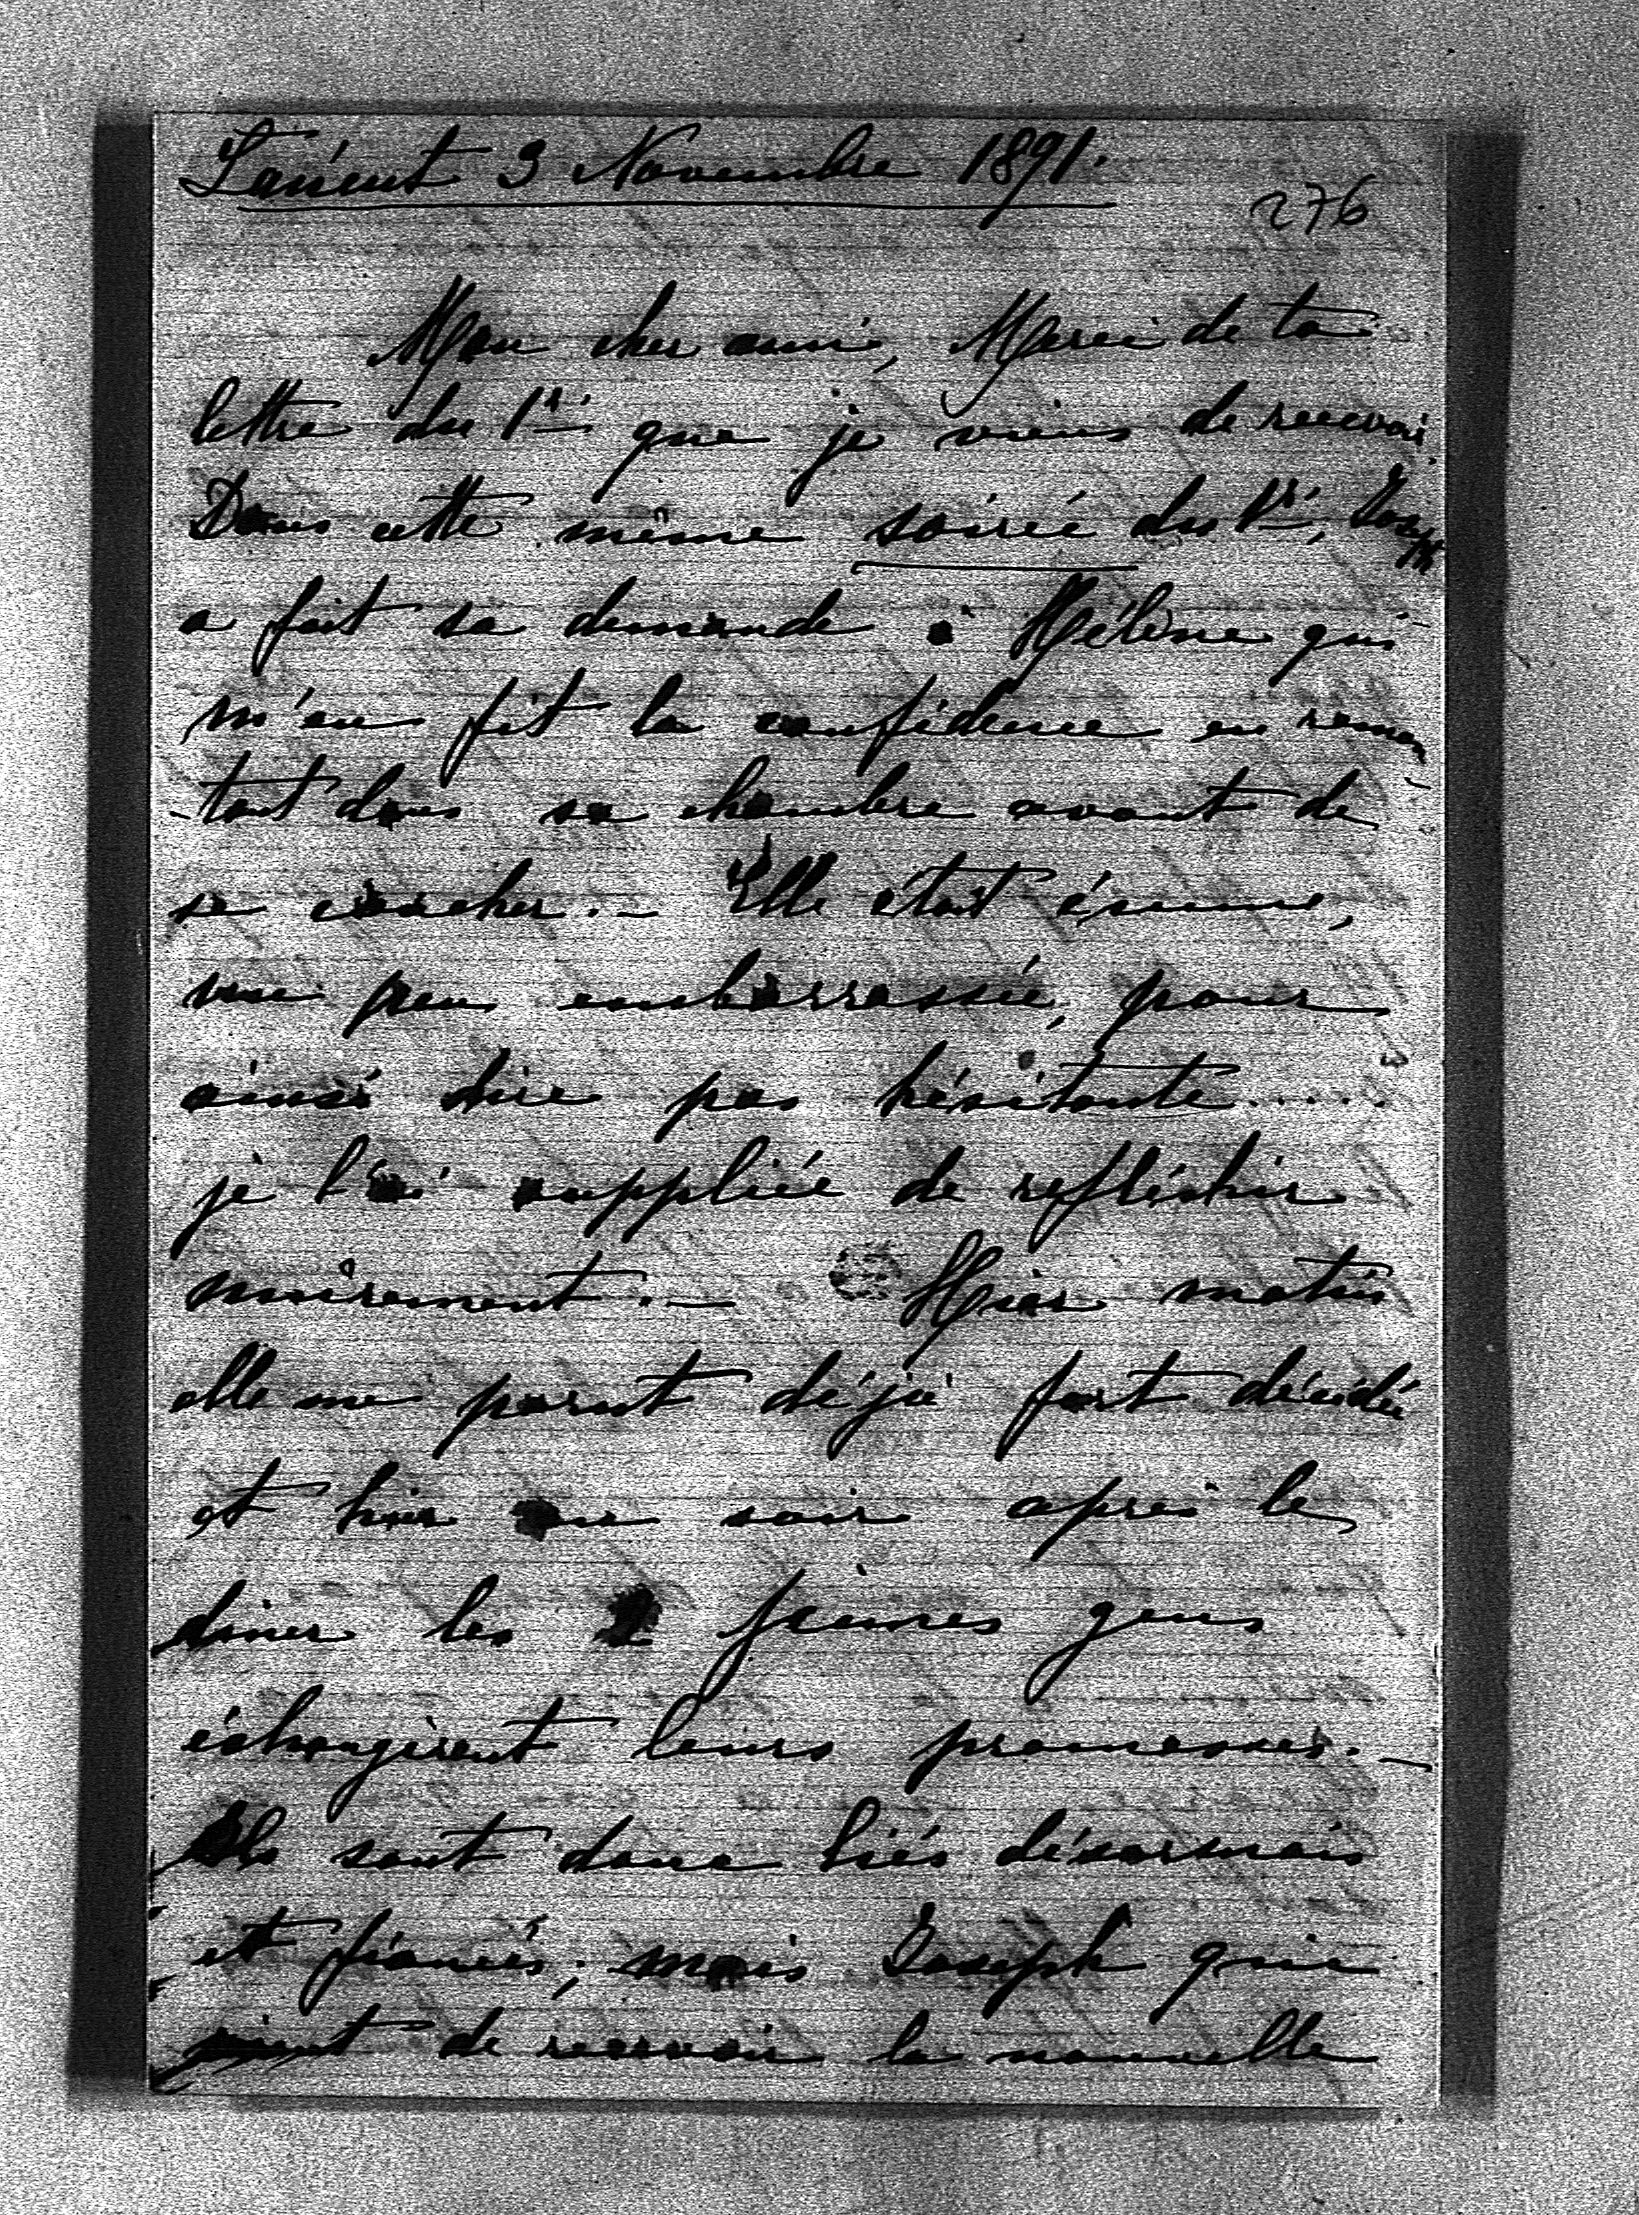 Lanéeut 3 Novembre 1891.
276
Mon cher ami, Merci de ta
lettre du 1er que je viens de recevoir.
Dans cette même soirée du 1er, Joseph
a fait sa demande à Hélène qui
m'en fit la confidence en remon
-tant dans sa chambre avant de
se coucher. — Elle était émue,
un peu embarrassée, pour
ainsi dire pas hésitante.....
je l'ai suppliée de refléchir
mûrement. — Hier matin
elle me parut déjà fort décidée
et hier au soir après le
diner les 2 jeunes gens
échangèrent leurs promesses. —
Ils sont donc liés désormais
et fiancés; mais Joseph qui
vient de recevoir la nouvelle